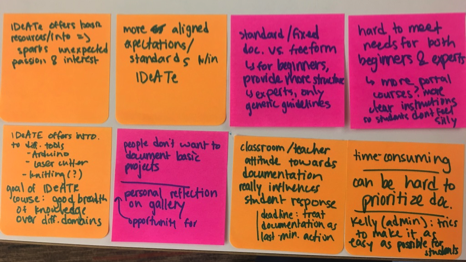 IDeATe offers basic
resources/into =>
sparks unexpected
passion & interest
more aligned
expectations/
standards w/in
IDeATe
standard/fixed
doc. vs freeform
↳ for beginners,
provide more structure
↳ experts, only
generic guidelines
hard to meet
needs for both
beginners & experts
↳ more portal
courses? more
clear instructions
so students don't feel
silly
IDeATe offers intro.
to diff. tools
- Arduino
- laser cutter
- knitting (?)
goal of IDeATe
course: good breadth
of knowledge
over diff. domains
people don't want to
document basic
projects
personal reflection
on gallery
opportunity for
classroom/teacher
attitude towards
documentation
really influences
student response
deadline: treat
documentation as
last min. action
time consuming
can be hard to
prioritize doc.
Kelly (admin): tries
to make it as
easy as possible for
students